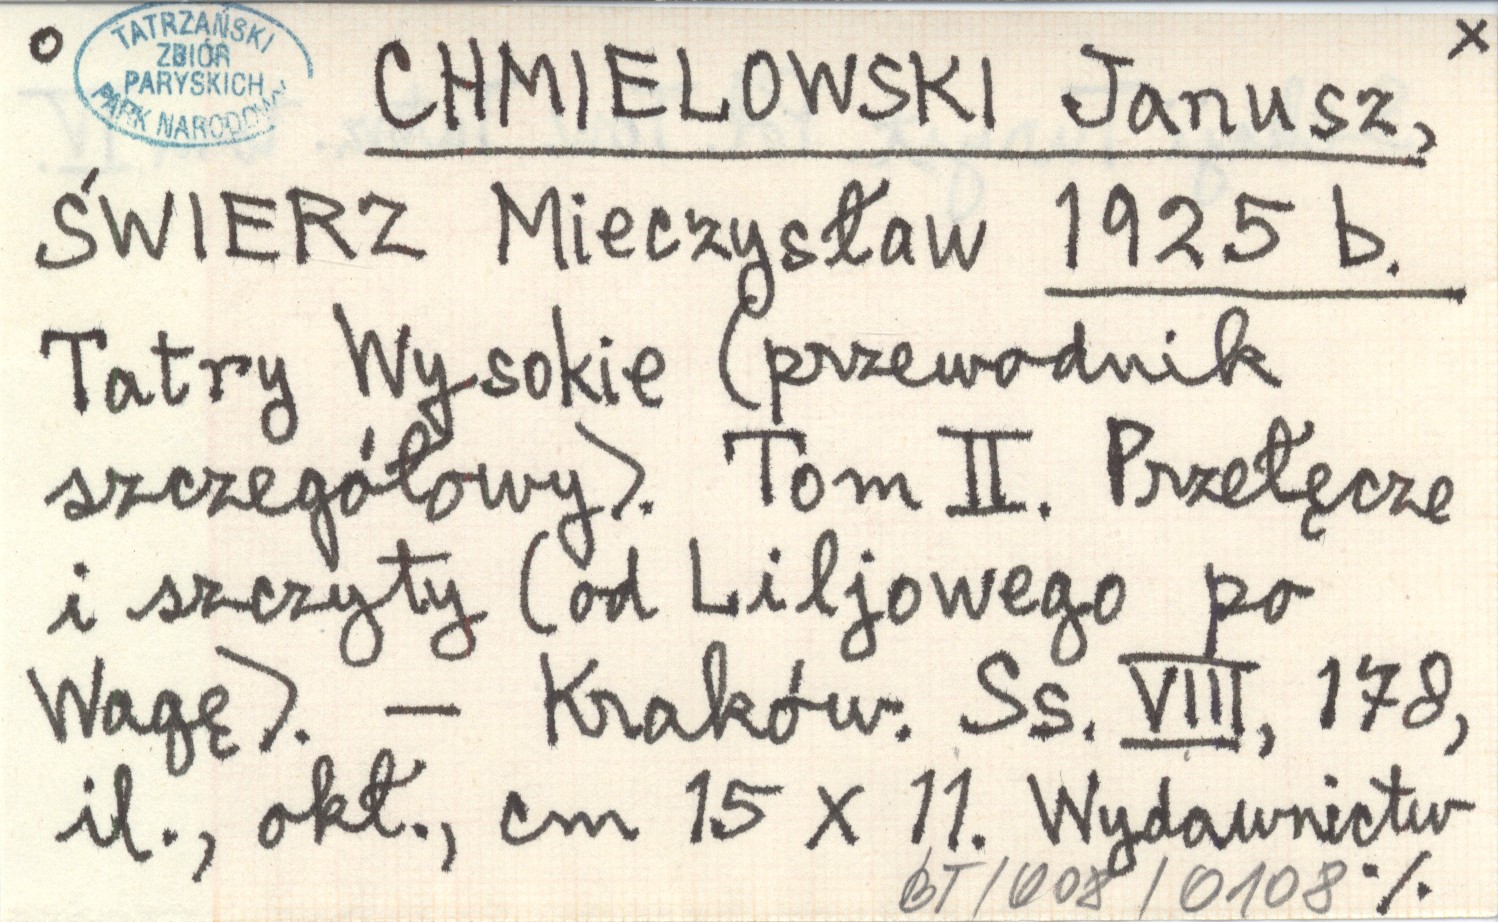 o
TATRZAŃSKI
ZBIÓR
PARYSKICH
PARK NARODOWY
x
CHMIELOWSKI Janusz,
ŚWIERZ Mieczysław 1925 b.
Tatry Wysokie (przewodnik
szczegółowy). Tom II. Przełęcze
i szczyty (od Liljowego po
Wagę). — Kraków. Ss. VIII, 178,
il., okł., cm 15 x 11. Wydawnictw
BT/008/0108 ./.